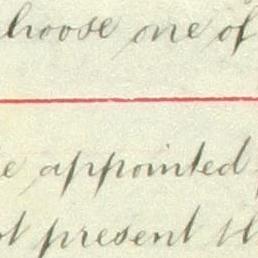 choose one of
appointed
present